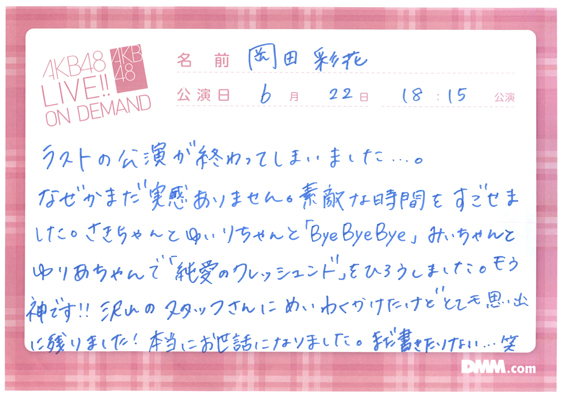 AKB48
LIVE!!
ON DEMAND
AKB
48
名前 岡田 彩花
公演日 6月 22日 18:15 公演
ラストの公演が終わってしまいました…。
なぜかまだ実感ありません。素敵な時間をすごせま
した。さきちゃんとゆいりちゃんと「ByeByeBye」みぃちゃんと
ゆりあちゃんで「純愛のクレッシェンド」をひろうしました。もう
神です!! 沢山のスタッフさんにめいわくかけたけどとても思い出
に残りました!本当にお世話になりました。まだ書きたりない…笑
DMM.com